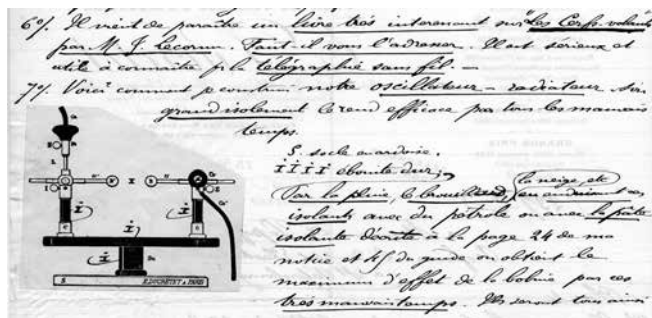 6°/. Il vient de paraître un livre très interessant sur "les Cerfs-volants"
par M. J. Lecornu. Faut-il vous l'adresser. Il est sérieux et
utile à connaître pr la télégraphie sans fil. —
7°/. Voici comment je construis notre oscillateur - radiateur. Son
grand isolement le rend efficace par tous les mauvais
temps.
S. socle en ardoise.
I I I I ébonite dur;
Par la pluie, le brouillard, la neige, etc
en enduisant ces
isolants avec du pétrole ou avec la pâte
isolante décrite à la page 24 de ma
notice et 45 du guide on obtient le
maximum d'effet de la bobine par ces
très mauvais temps. Ils seront tous ainsi
S E. DUCRETET À PARIS